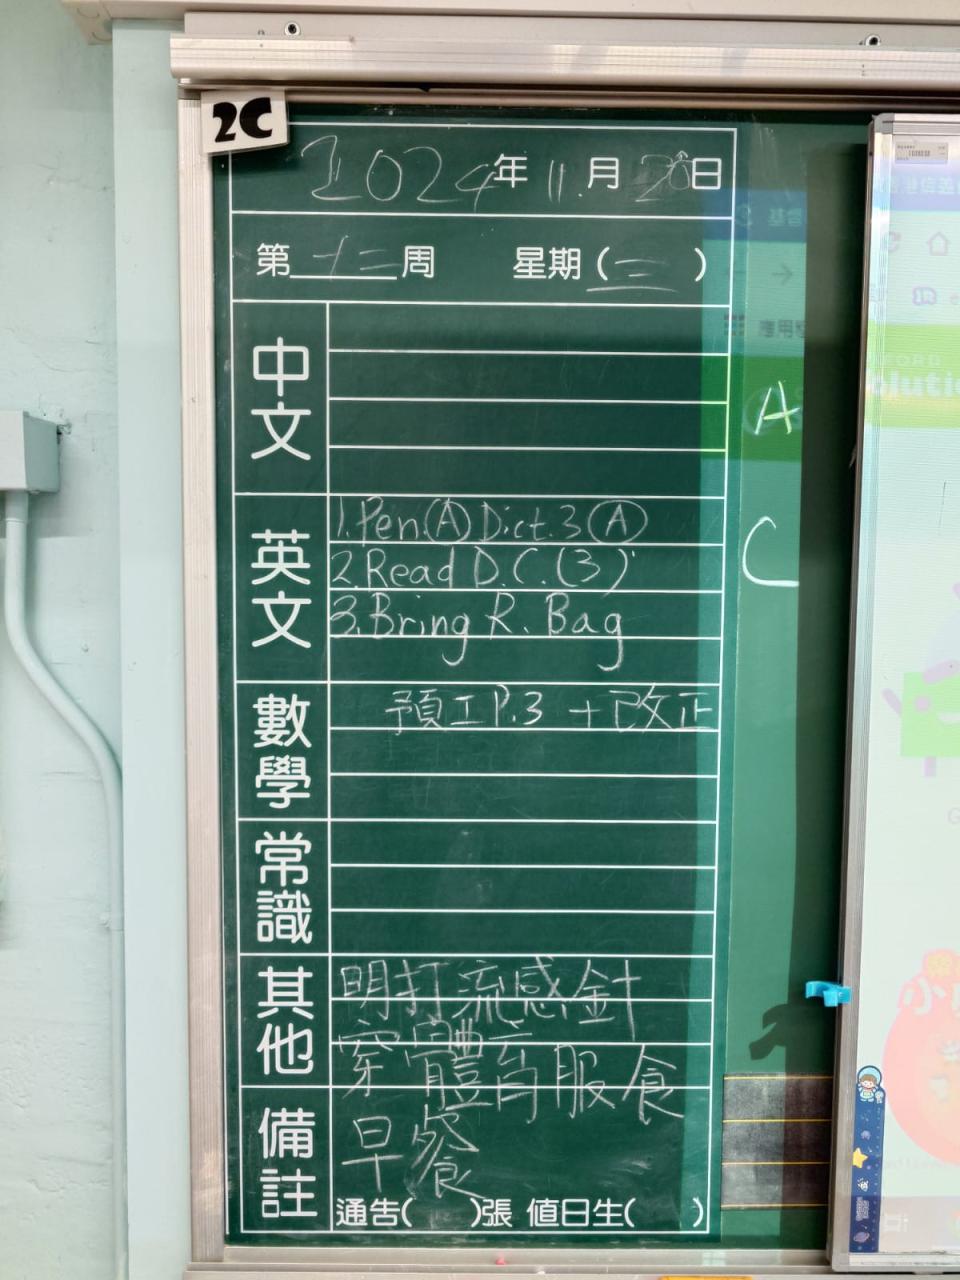 2C
2024年11月20日
第十二周 星期(三)
中文
英文
1.Pen.(A) Dict.3 (A)
2.Read D.C.(3)
3.Bring R. Bag
數學
預工P.3 + 改正
常識
其他
明打流感針
穿體育服食
早餐
備註
通告( )張 值日生( )
A
C